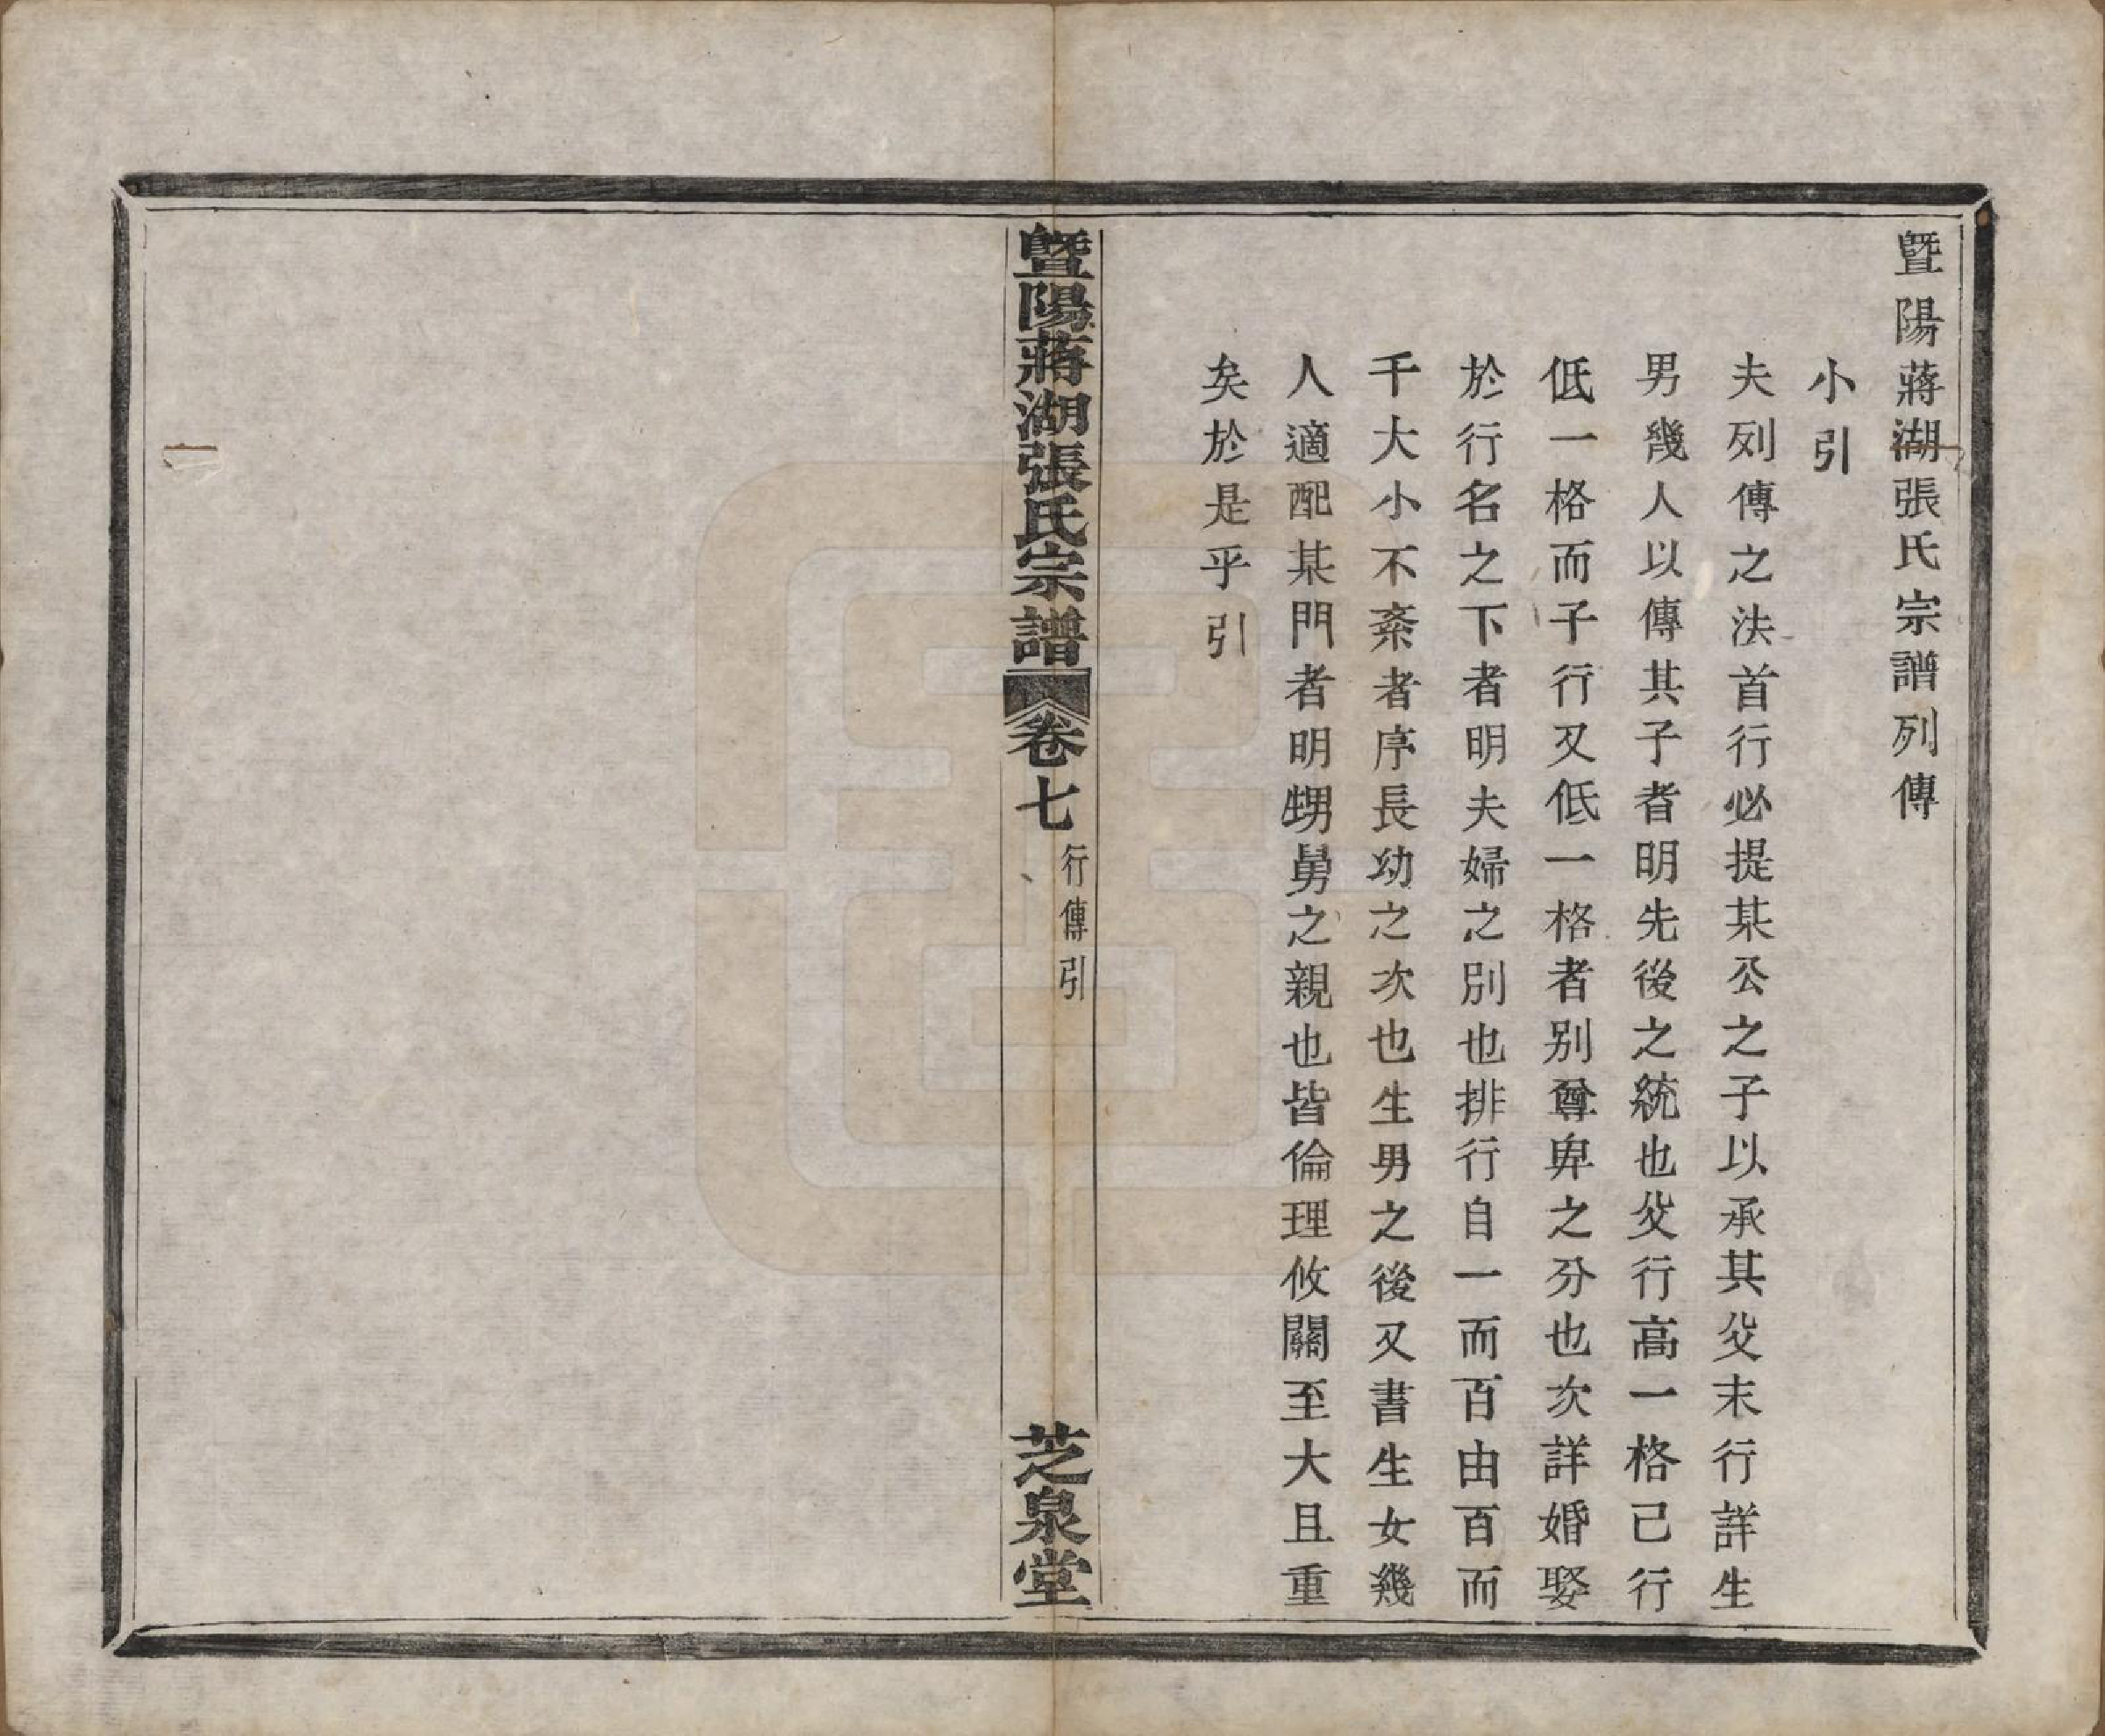 暨陽蔣湖張氏宗譜列傳
小引
夫列傳之法首行必提某公之子以承其父末行詳生
男幾人以傳其子者明先後之統也父行高一格己行
低一格而子行又低一格者别尊卑之分也次詳婚娶
於行名之下者明夫婦之別也排行自一而百由百而
千大小不紊者序長幼之次也生男之後又書生女幾
人適配某門者明甥舅之親也皆倫理攸關至大且重
矣於是乎引
暨陽蔣湖張氏宗譜
卷七
行傳引
芝泉堂